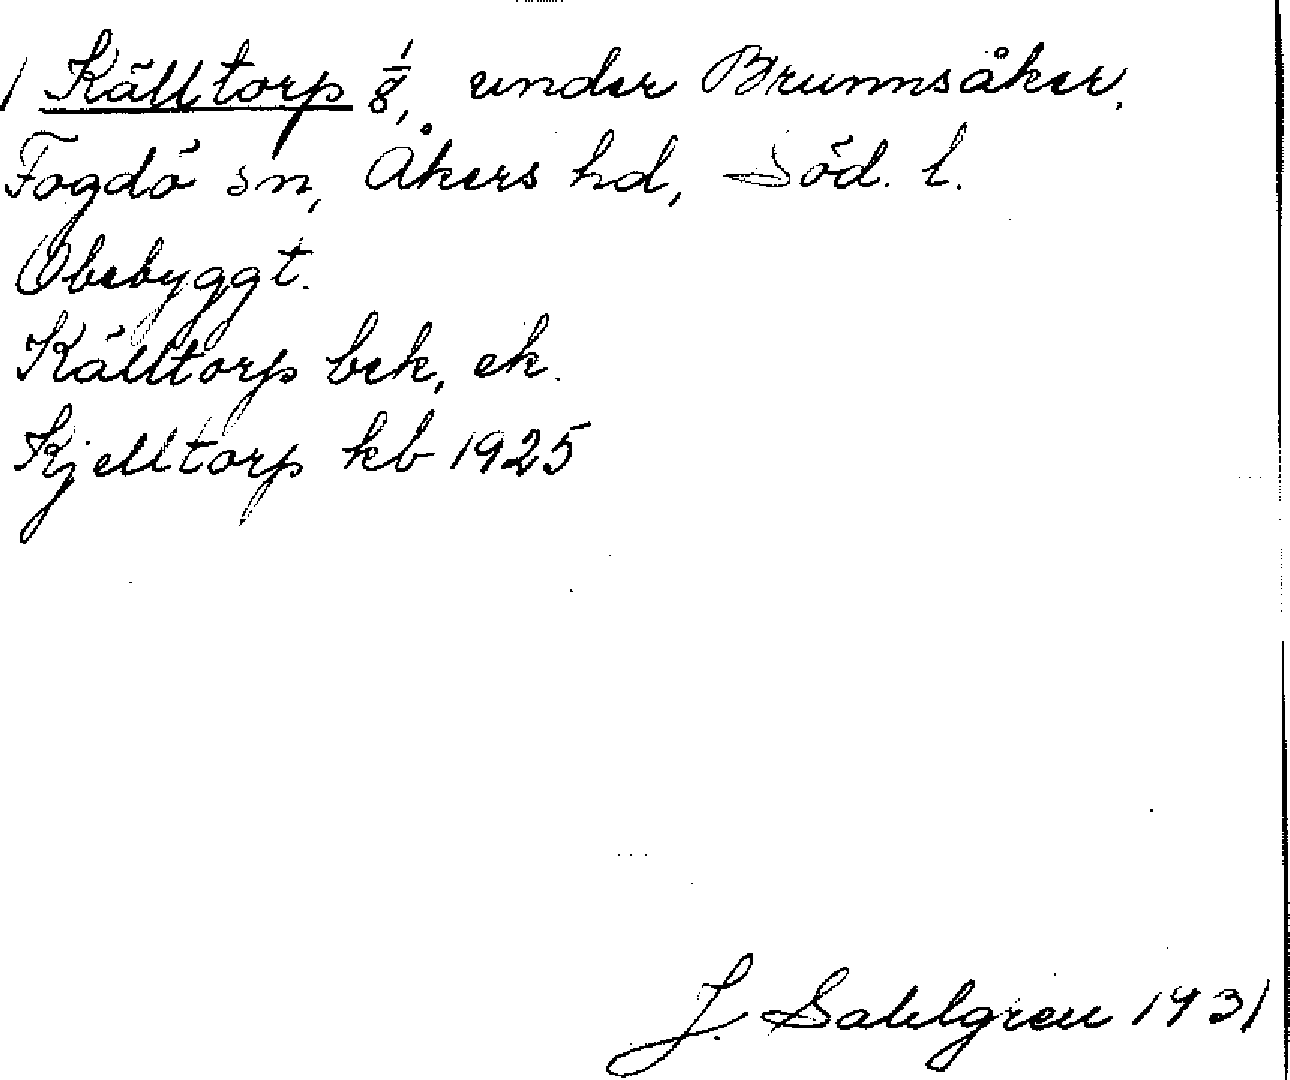 / Källtorp 1/8, under Brunnsåker,
Fogdö sn, Åkers hd, Söd. l.
Obebyggt.
Källtorp bek, ek.
Kjelltorp kb 1925
J. Sahlgren 1931